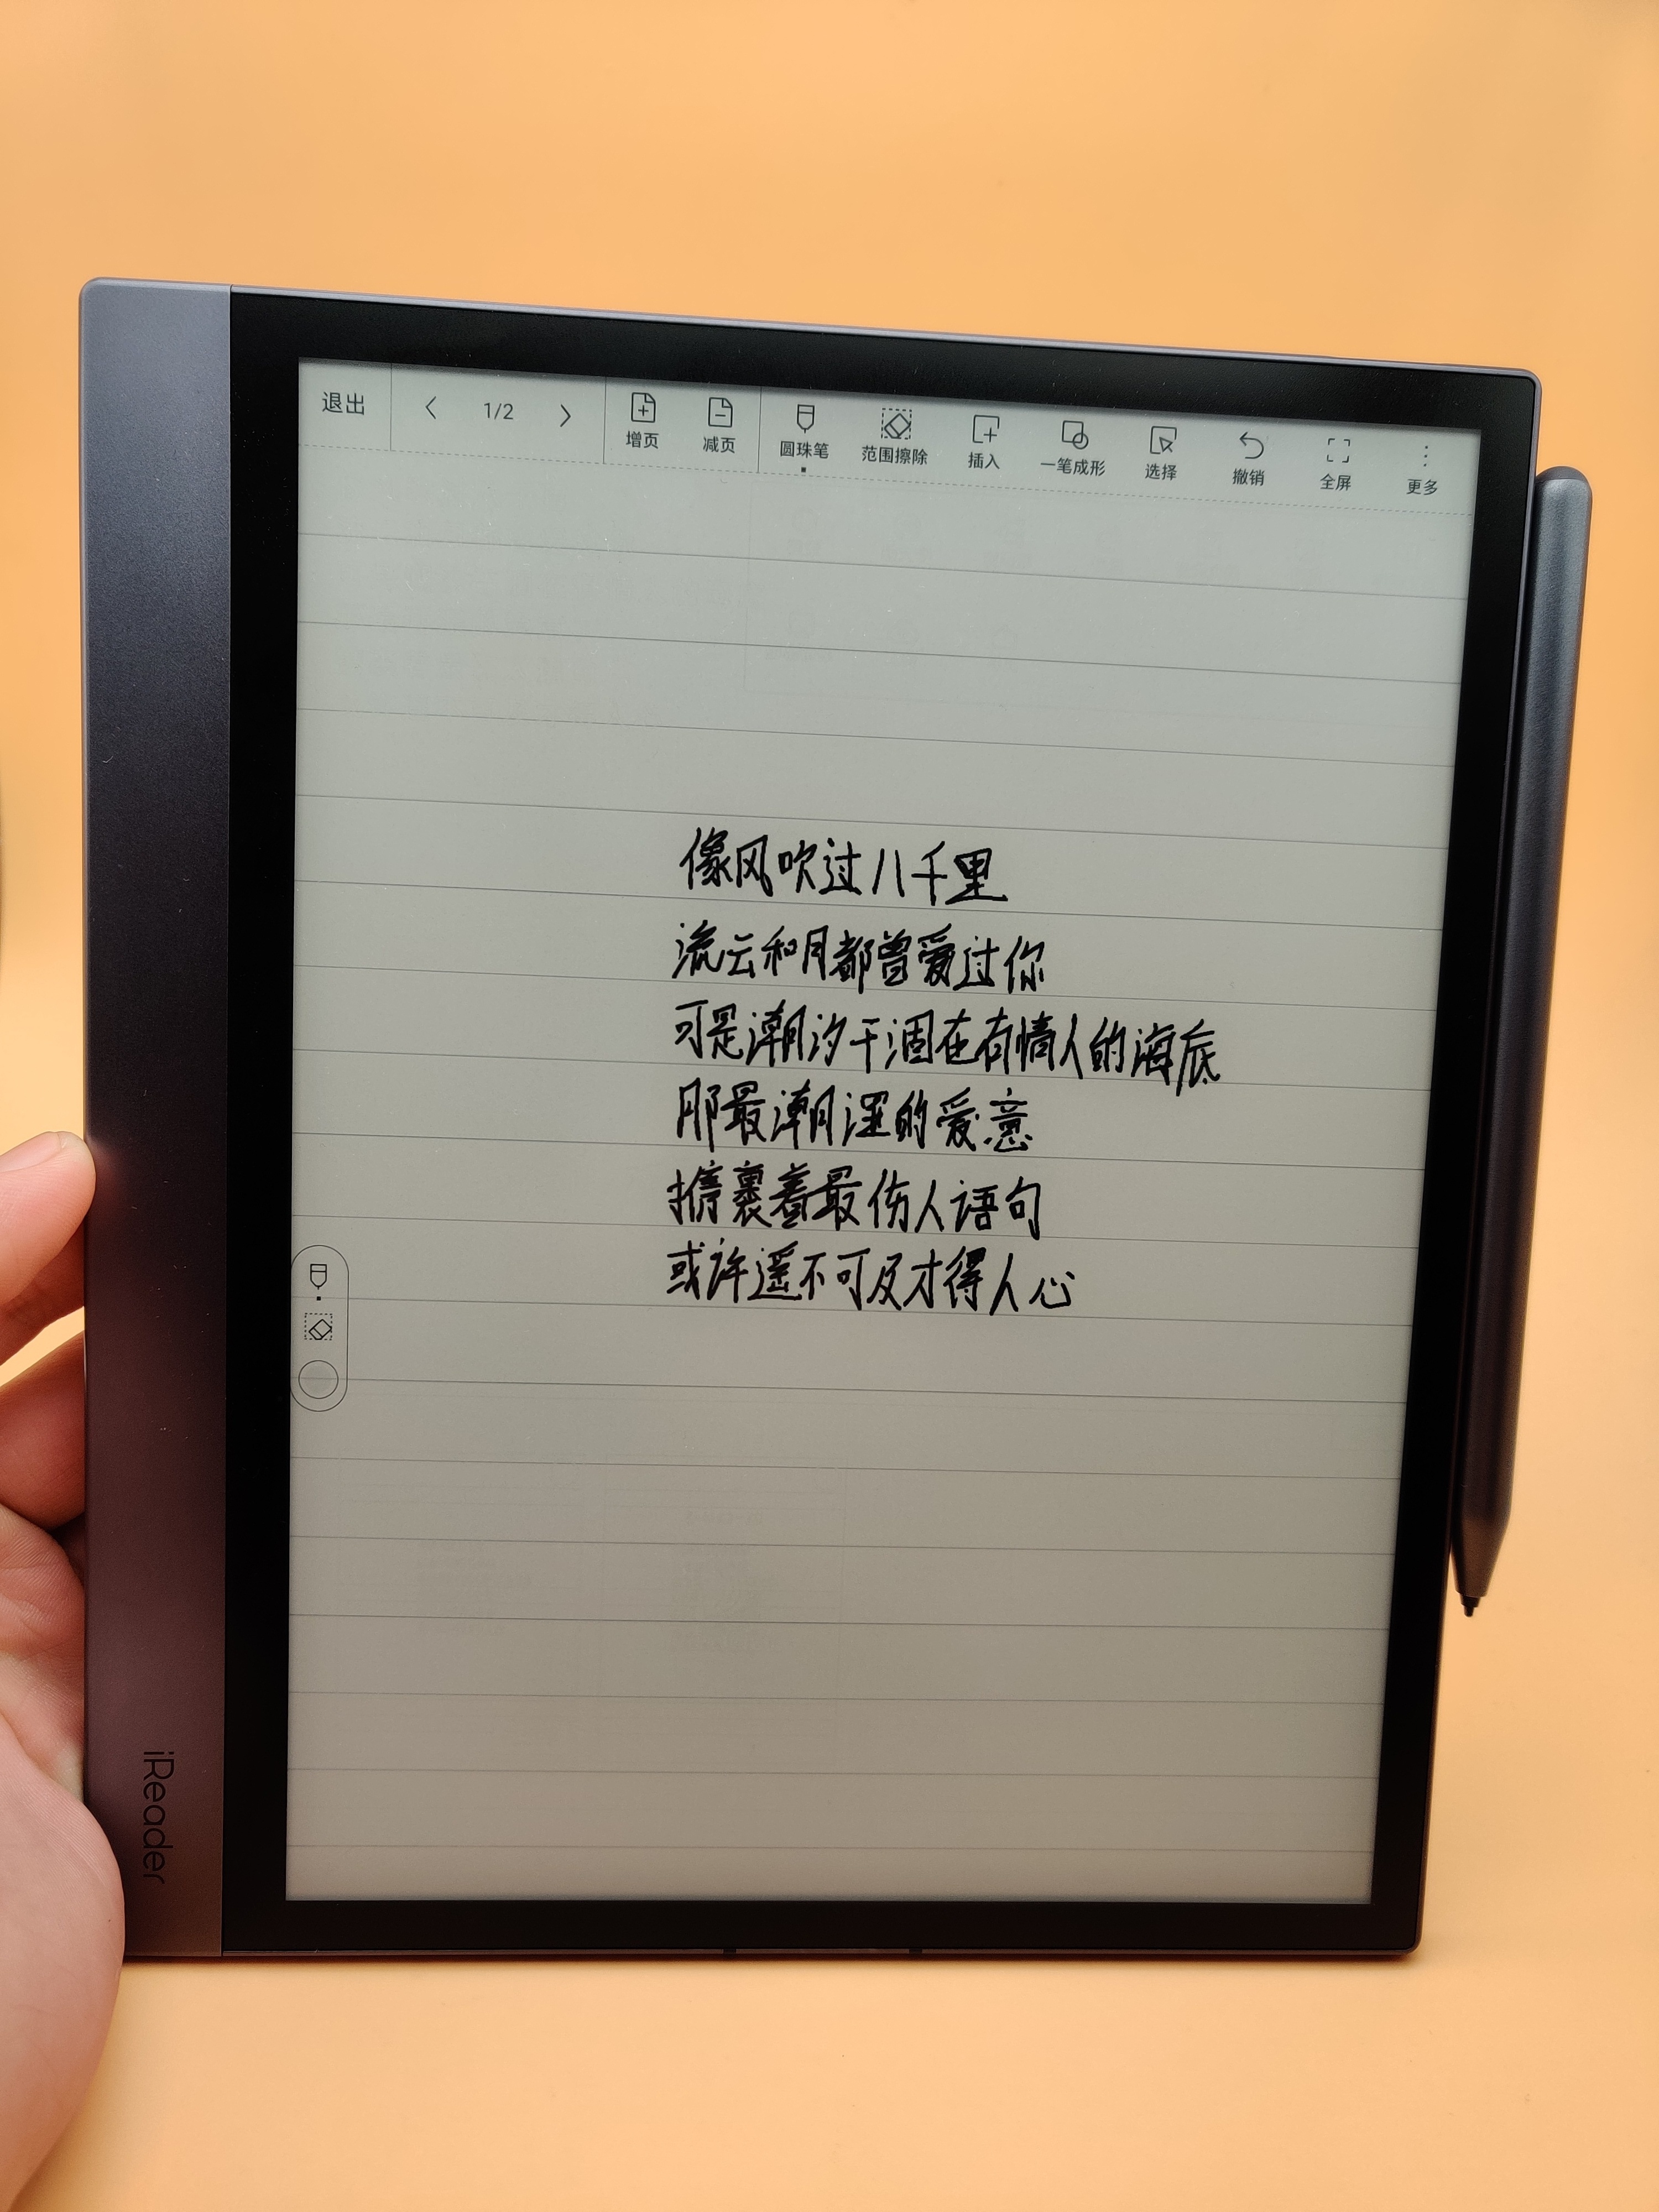 退出
1/2
增页
减页
圆珠笔
范围擦除
插入
一笔成形
选择
撤销
全屏
更多
像风吹过八千里
流云和月都曾爱过你
可是潮汐干涸在有情人的海底
那最潮湿的爱意
携裹着最伤人语句
或许遥不可及才得人心
iReader